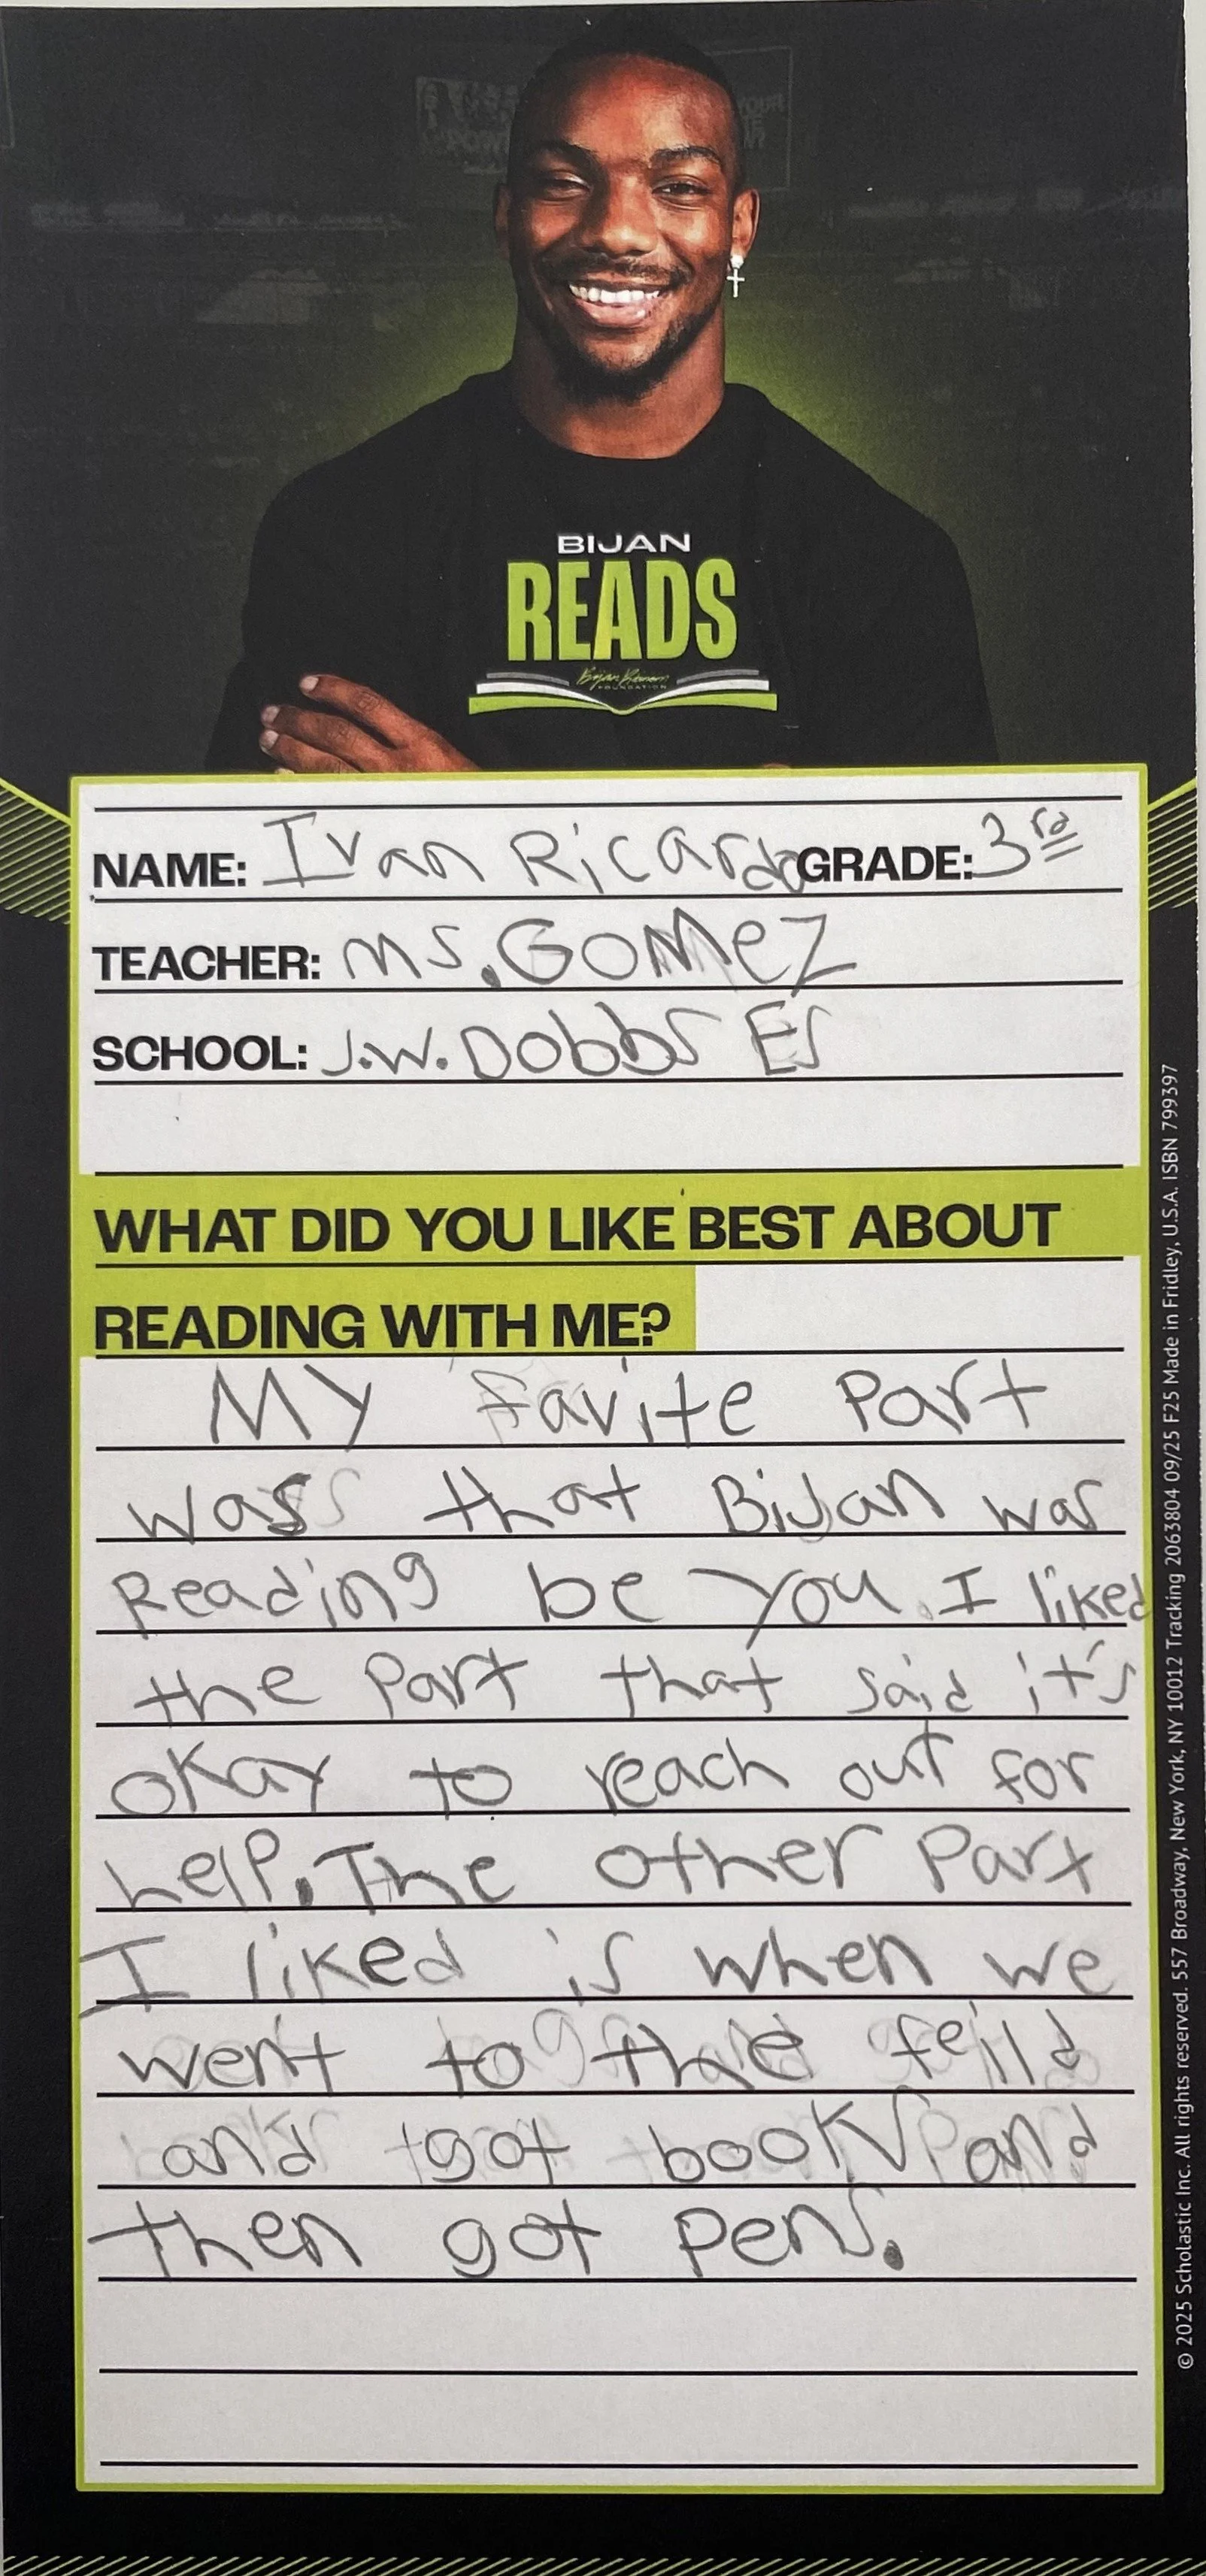 BIJAN
READS
Bijan Robinson
FOUNDATION
NAME: Ivan Ricardo GRADE: 3rd
TEACHER: Ms. Gomez
SCHOOL: J.W. Dobbs ES
WHAT DID YOU LIKE BEST ABOUT
READING WITH ME?
My favite part
was that Bijan was
Reading be you. I liked
the part that said it's
okay to reach out for
help. The other part
I liked is when we
went to the feild
and got books and
then got pens.
© 2025 Scholastic Inc. All rights reserved. 557 Broadway, New York, NY 10012 Tracking 2063804 09/25 F25 Made in Fridley, U.S.A. ISBN 799397